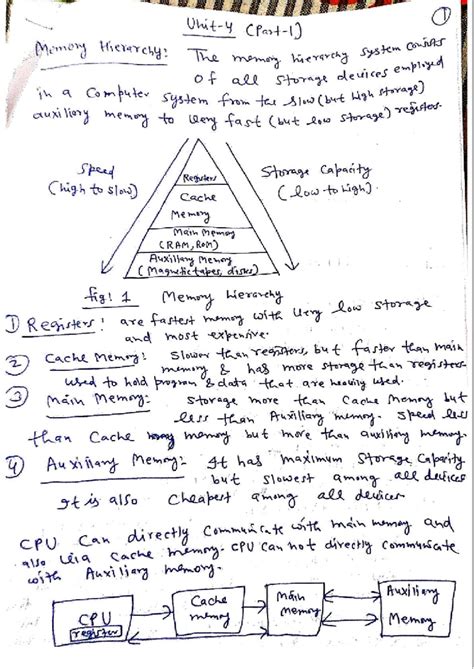 Unit-4 (Part-1)
1
Memory Hierarchy: The memory hierarchy system consists
of all storage devices employed
in a Computer System from the slow (but high storage)
auxiliary memory to very fast (but low storage) registers.
Speed
(high to slow)
Storage Capacity
(low to high).
Registers
Cache
Memory
Main Memory
(RAM, ROM)
Auxiliary Memory
(Magnetic tapes, disks)
fig: 1 Memory hierarchy
1 Registers: are fastest memory with very low storage
and most expensive.
2 Cache Memory: Slower than registers, but faster than main
memory & has more storage than registers
used to hold program & data that are heavily used.
3 Main Memory: Storage more than Cache memory but
less than Auxiliary memory. Speed less
than Cache memory but more than auxiliary memory.
4 Auxiliary Memory:- It has maximum Storage Capacity
but slowest among all devices
It is also Cheapest among all devices
CPU Can directly Communicate with main memory and
also via Cache memory. CPU can not directly communicate
with Auxiliary memory.
CPU
register
Cache
memory
Main
Memory
Auxiliary
Memory